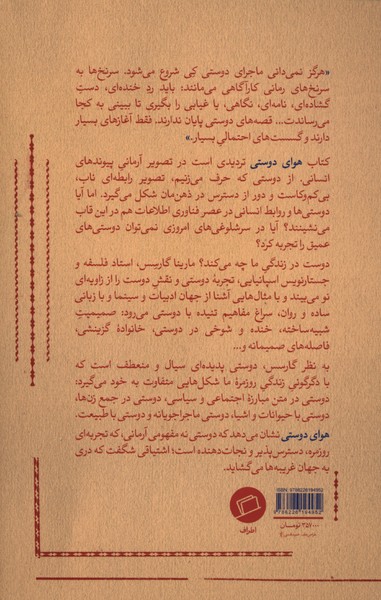 «هرگز نمی‌دانی ماجرای دوستی کِی شروع می‌شود. سرنخ‌ها به
سرنخ‌های رمانی کارآگاهی می‌مانند: باید ردِ خنده‌ای، دستِ
گشاده‌ای، نامه‌ای، نگاهی، یا غیابی را بگیری تا ببینی به کجا
می‌رساندت... قصه‌های دوستی پایان ندارند. فقط آغازهای بسیار
دارند و گسست‌های احتمالیِ بسیار.»
کتاب هوای دوستی تردیدی است در تصویر آرمانیِ پیوندهای
انسانی. از دوستی که حرف می‌زنیم، تصویر رابطه‌ای ناب،
بی‌کم‌وکاست و دور از دسترس در ذهن‌مان شکل می‌گیرد. اما آیا
دوستی‌ها و روابط انسانی در عصر فناوری اطلاعات هم در این قاب
می‌نشینند؟ آیا در سرشلوغی‌های امروزی نمی‌توان دوستی‌های
عمیق را تجربه کرد؟
دوست در زندگیِ ما چه می‌کند؟ مارینا گارسس، استاد فلسفه و
جستارنویس اسپانیایی، تجربهٔ دوستی و نقشِ دوست را از زاویه‌ای
نو می‌بیند و با مثال‌هایی آشنا از جهان ادبیات و سینما و با زبانی
ساده و روان، سراغ مفاهیم تنیده با دوستی می‌رود: صمیمیتِ
شبیه‌ساخته، خنده و شوخی در دوستی، خانوادهٔ گزینشی،
فاصله‌های صمیمانه و...
به نظر گارسس، دوستی پدیده‌ای سیال و منعطف است که
با دگرگونیِ زندگیِ روزمرهٔ ما شکل‌هایی متفاوت به خود می‌گیرد:
دوستی در متن مبارزهٔ اجتماعی و سیاسی، دوستی در جمع زن‌ها،
دوستی با حیوانات و اشیا، دوستیِ ماجراجویانه و دوستی با طبیعت.
هوای دوستی نشان می‌دهد که دوستی نه مفهومی آرمانی، که تجربه‌ای
روزمره، دسترس‌پذیر و نجات‌دهنده است؛ اشتیاقی شگفت که دری
به جهان غریبه‌ها می‌گشاید.
ISBN: 9786228194952
9 786228 194952
۳۵۷۰۰۰ تومـــان
اطراف